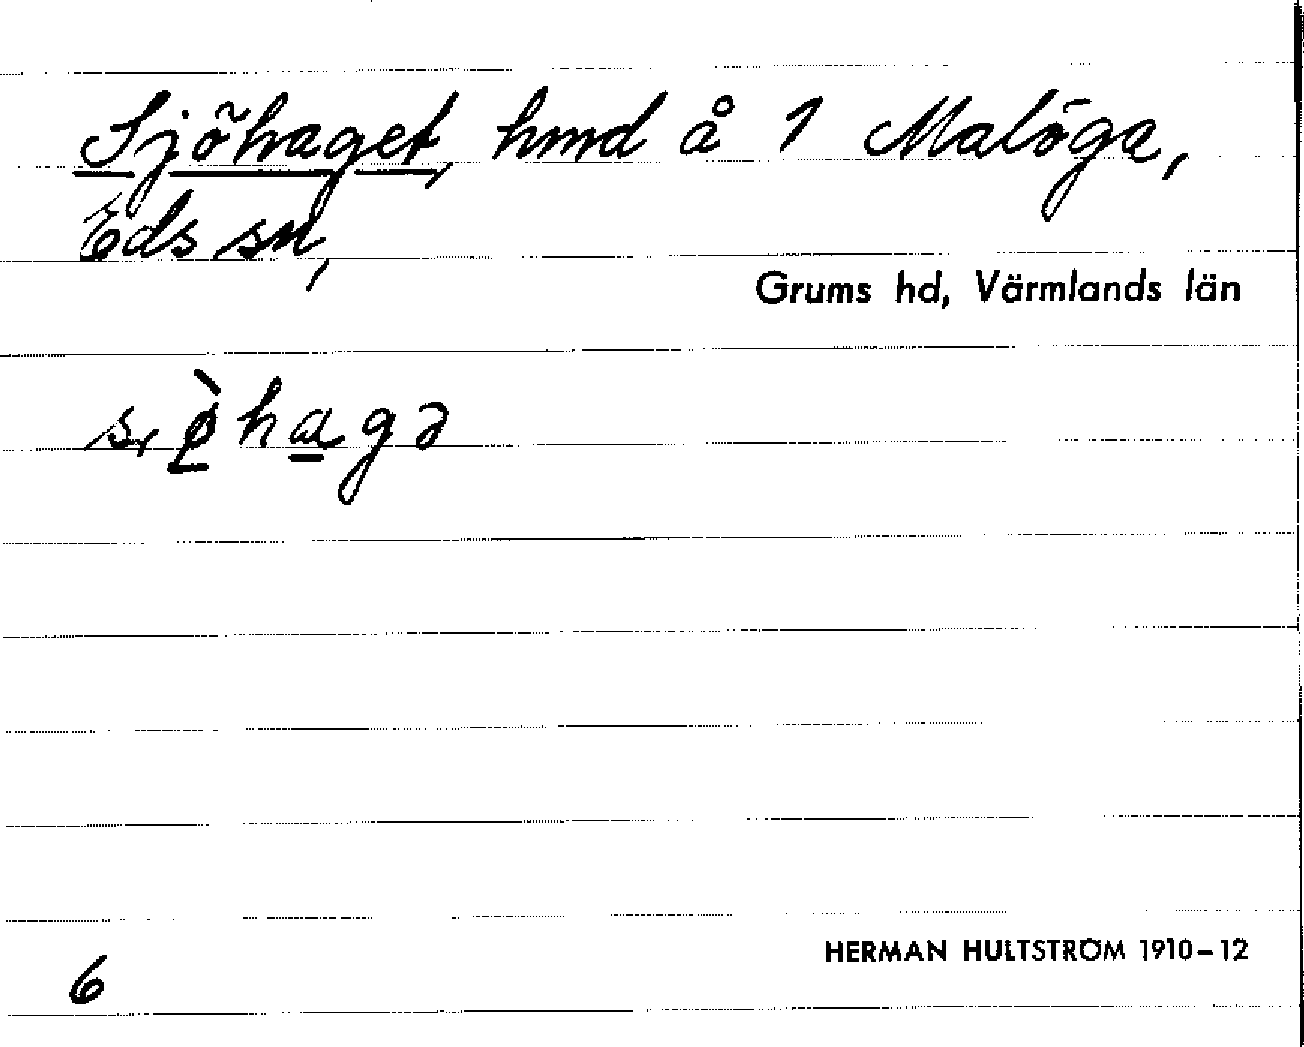 Sjöhaget, hmd å 1 Malöga,
Eds sn,
Grums hd, Värmlands län
6
HERMAN HULTSTRÖM 1910–12